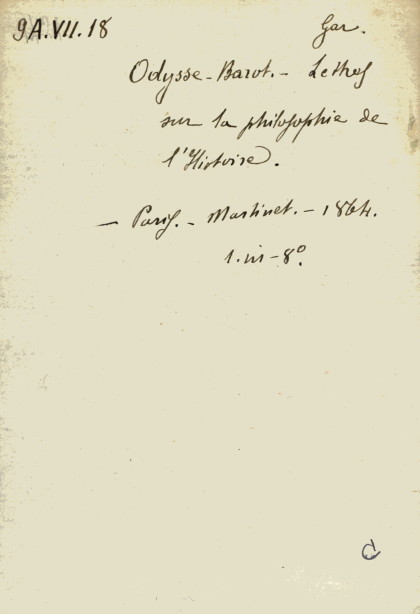 9A.VII.18
Gar.
Odysse-Barot. - Lettres
sur la philosophie de
l'Histoire.
- Paris. - Martinet. - 1864.
1. in-8º.
C